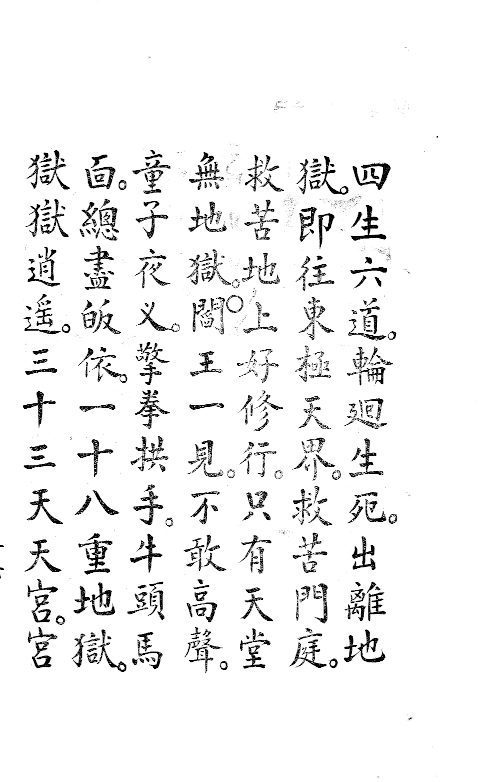 四生六道。輪廻生死。出離地
獄。即往東極天界。救苦門庭。
救苦地上好修行。只有天堂
無地獄。○閻王一見。不敢高聲。
童子夜义。擎拳拱手。牛頭馬
面。總盡皈依。一十八重地獄。
獄獄逍遥。三十三天天宮。宮